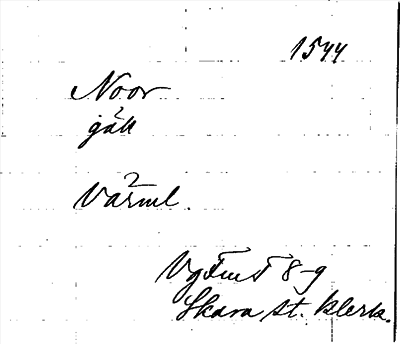 1544
Noor
gäll
Värml.
VgFmT 8-9
Skara st. klerk.